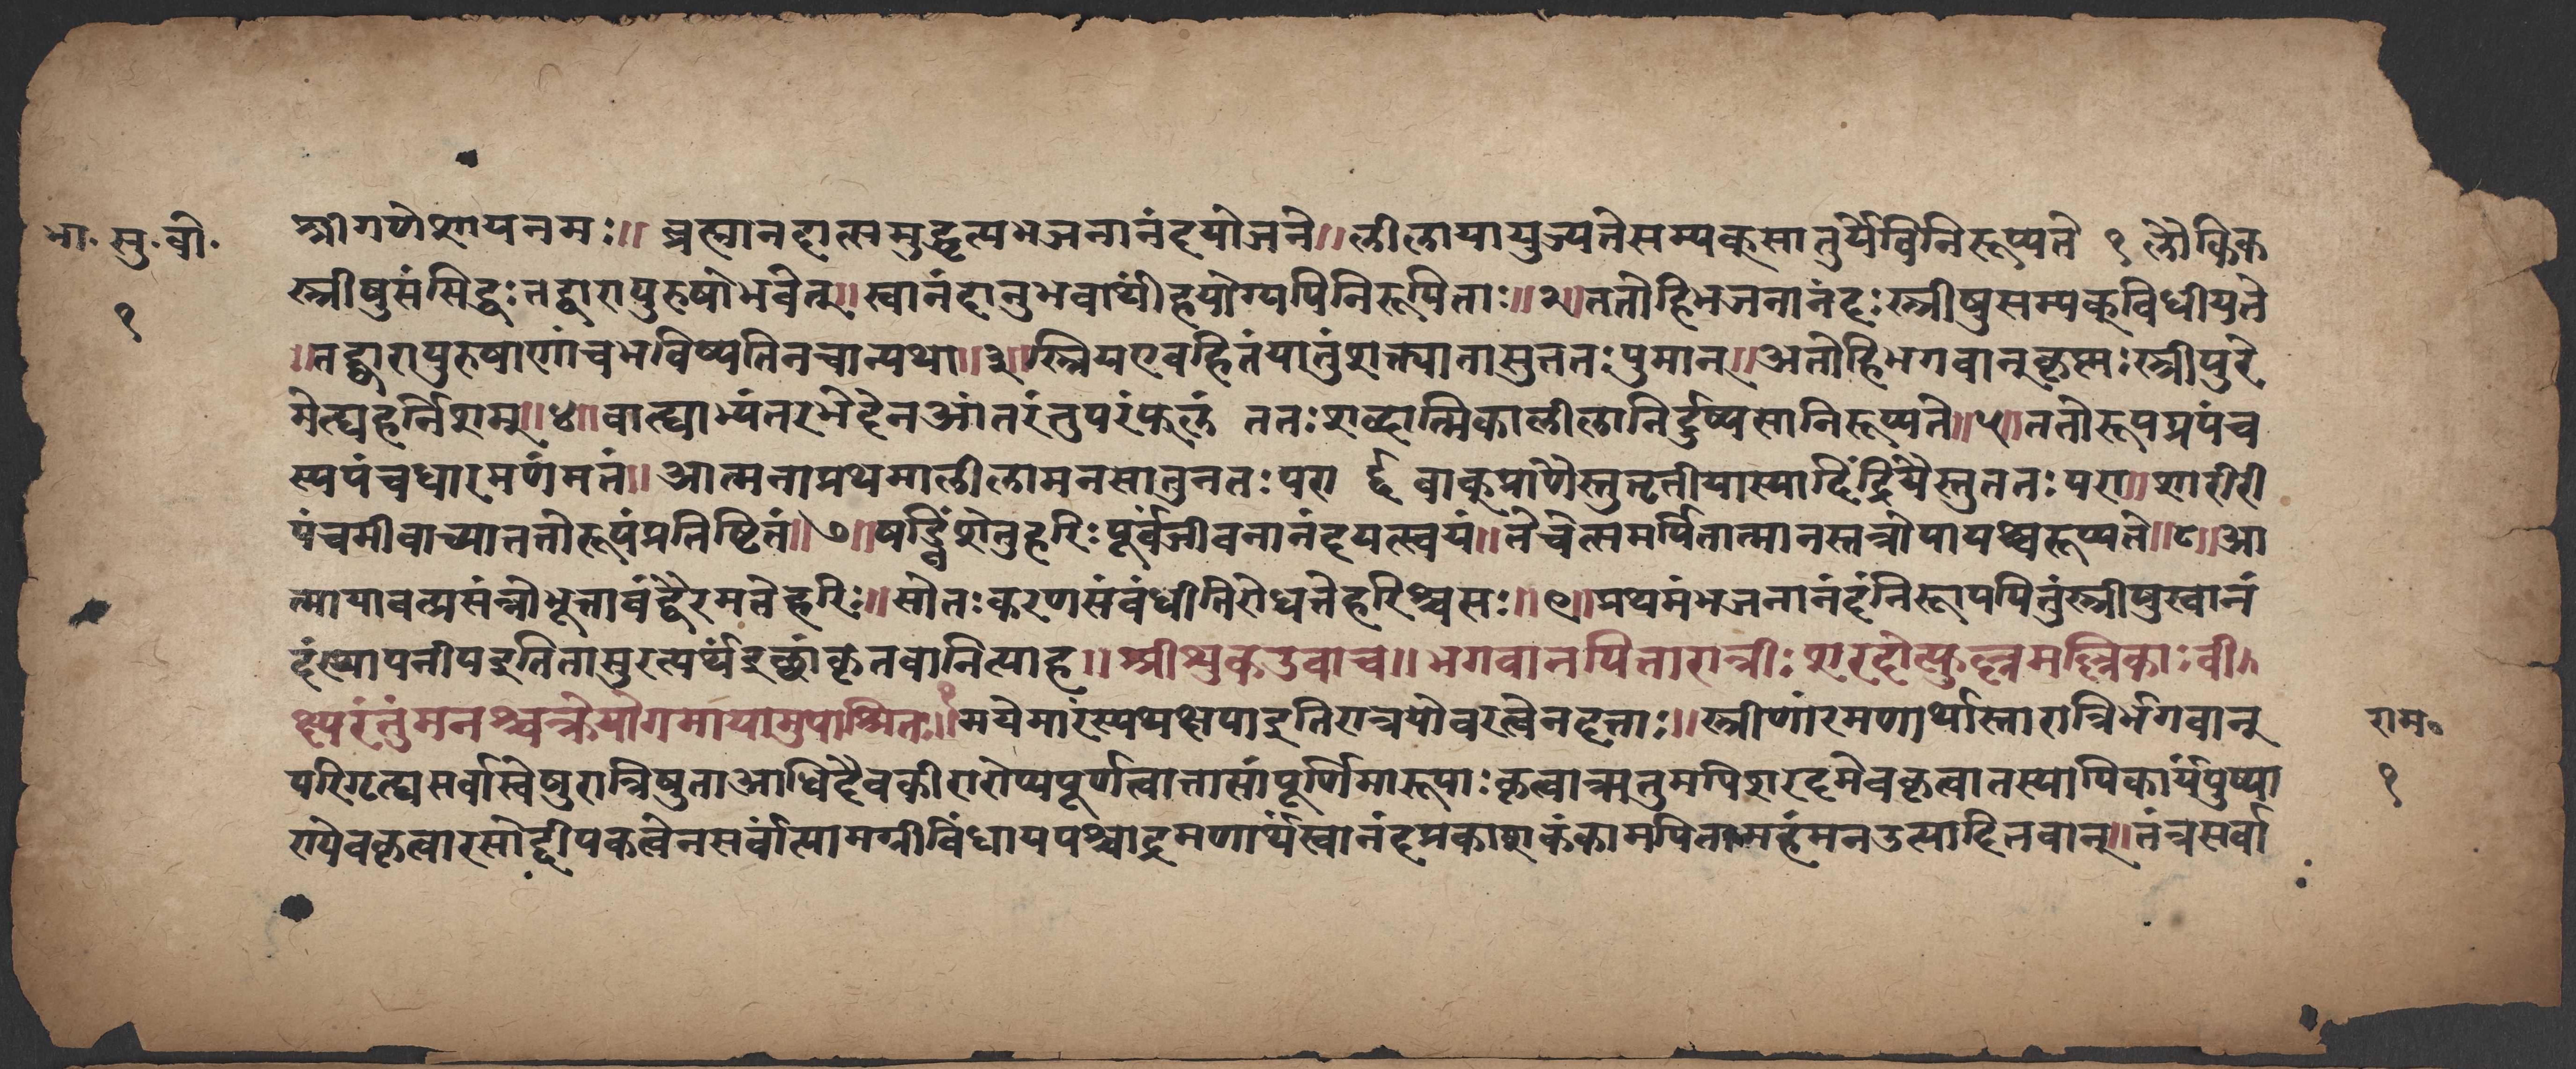 भा. सु. वी.
१
श्रीगणेशायनमः॥ ब्रह्मानंदात्समुद्धृत्यभजनानंदयोजने॥लीलायायुज्यतेसम्यक्सातुर्येविनिरूप्यते १ लौकिक
स्त्रीषुसंसिद्धःतद्द्वारापुरुषोभवेत्॥स्वानंदानुभवार्थीहयोग्यपिनिरूपिताः॥२॥ततोहिभजनानंदःस्त्रीषुसम्यक्विधीयते
॥तद्द्वारापुरुषाणांचभविष्यतिनचान्यथा॥३॥स्त्रियएवहितंयातुंशक्त्यातासुततःपुमान्॥अतोहिभगवान्कृष्णःस्त्रीपुरे
मेत्द्यहर्निशम्॥४॥वात्द्याभ्यंतरभेदेनआंतरंतुपरंफलं ततःशब्दात्मिकालीलानिर्दुष्यसानिरूप्यते॥५॥ततोरूपप्रपंच
स्यपंचधारमणंमतं॥आत्मनाप्रथमालीलामनसातुनतःपरा र्द्द वाक्प्राणैस्तुतृतीयास्यादिंद्रियैस्तुततःपरा॥शारीरी
पंचमीवाच्याततोरूपंप्रतिष्टितं॥७॥षड्विंशेतुहरिःपूर्वंजीवनानंदयत्स्वयं॥तेचेत्समर्पितात्मानस्तत्रोपायश्चरूप्यते॥८॥आ
त्मायावत्प्रसंन्नोभूत्तावद्वैरमतेहरिः॥सोतःकरणसंबंधीतिरोधत्तेहरिश्चसः॥९॥प्रथमंभजनानंदंनिरूपपितुंस्त्रीषुस्वानं
दंस्थापनीपइतितासुरत्यर्थंइच्छांकृतवानित्याह॥श्रीशुकउवाच॥भगवानपितारात्रीःशरदोत्फुल्लमल्लिकाःवी
क्ष्यरंतुंमनश्चक्रेयोगमायामुपाश्रितः॥१॥मयेमारंस्यथक्षपाइतिरात्रयोवरत्वेनदत्ताः॥स्त्रीणांरमणार्थास्तारात्रिर्भगवान्
परिगृत्द्यसर्वास्वेषुरात्रिषुताआधिदैवकीरारोप्यपूर्णत्वात्तासांपूर्णिमारूपाःकृत्वाऋतुमपिशरदमेवकृत्वातस्यापिकार्यंपुष्पा
ण्येवकृत्वारसोद्दीपकत्वेनसर्वात्यामग्रींविधायपश्चाद्रमणार्थंस्वानंदप्रकाशकंकामपितामहंमनउत्पादितवान्॥तंत्रसर्वा
राम॰
१